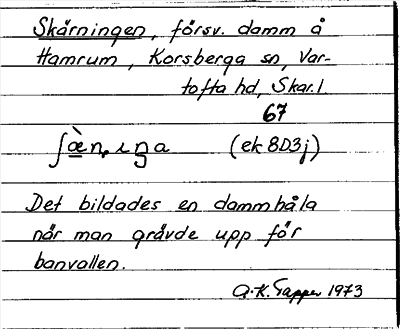 Skärningen, försv. damm å
Hamrum, Korsberga sn, Var-
tofta hd, Skar. l.
67
ʃæ̀n,ɩŋa (ek 8D3j)
Det bildades en dammhåla
når man grävde upp för
banvallen.
A-K. Tapper 1973